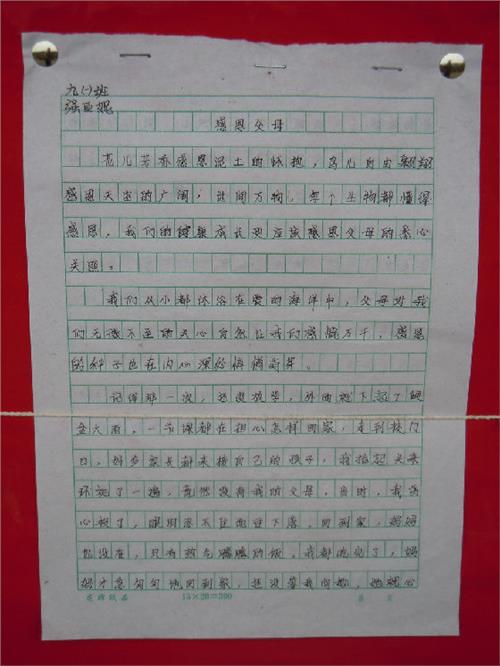 九(一)班
强亚妮
感恩父母
花儿芳香感恩泥土的怀抱，鸟儿自由翱翔
感恩天空的广阔，世间万物，每个生物都懂得
感恩，我们的健康成长更应该感恩父母的悉心
关照。
我们从小都沐浴在爱的海洋中，父母对我
们无微不至的关心自然让我们感慨万千，感恩
的种子也在内心深处悄悄
记得那一次，还没放学，外面就下起了倾
盆大雨，一节课都在担心怎样回家，走到校门
口，好多家长都来接自己的孩子，我抬起头来
环视了一遍，竟然没有我的父母，当时，我伤
心极了，眼泪忍不住地往下落，回到家，妈妈
也没在，只有热气腾腾的饭，我都吃完了，妈
妈才急匆匆地回到家，还没等我问她，她就心
15×20=300